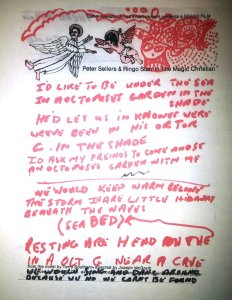 Peter Sellers & Ringo Starr in The Magic Christian
I'D LIKE TO BE UNDER THE SEA
IN A OCTOPUSES GARDEN IN THE
SHADE
HE'D LET US IN KNOWES WERE
WEVE BEEN IN HIS OCTOP
G. IN THE SHADE
ID ASK MY FREINDS TO COME AND SE
AN OCTOPUSES GARDEN WITH ME
WE WOULD KEEP WARM BELOW
THE STORM IN ARE LITTLE HIDAWAY
BENEATH THE WAVES
(SEA BED)
RESTING ARE HEAD ON THE
IN A OCT G NEAR A CAVE
WE WOULD SING AND DANCE AROUND
BECAUSE WE NO WE CANT BE FOUND